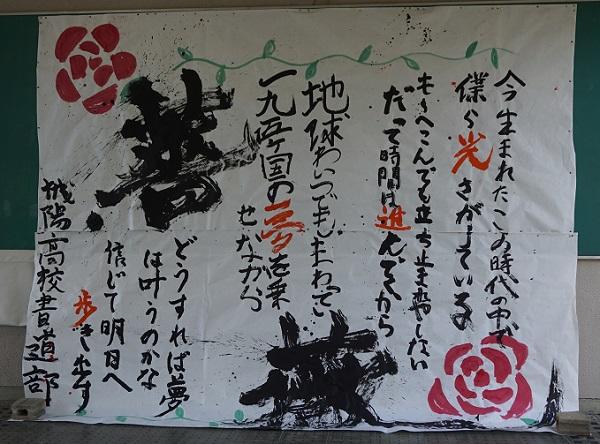 今生まれたこの時代の中で
僕ら光さがしている
へこんでも立ち止ま
だって時間は進んでくから
地球はいつでもまわってい
一九五ヶ国の夢を乗
せながら
薔
薇
どうすれば夢
は叶うのかな
信じて明日へ
歩き出す
城陽高校書道部